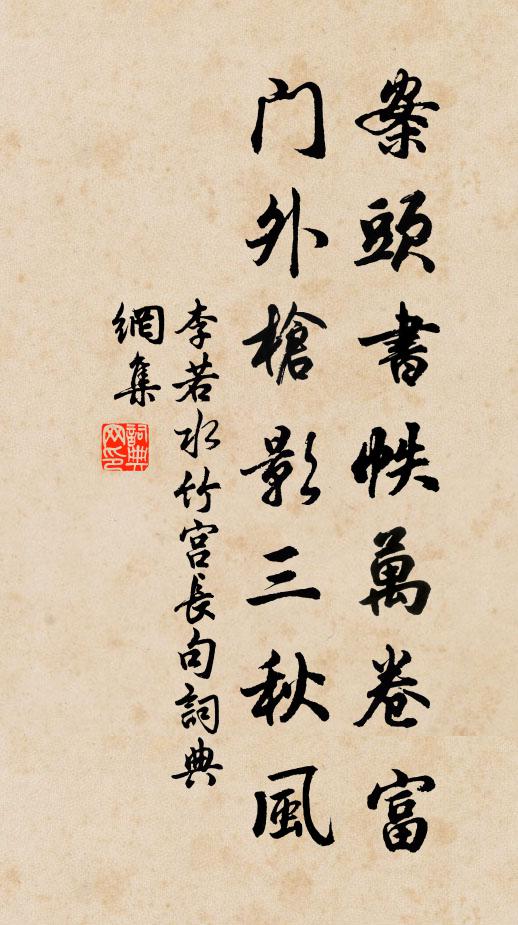 案頭書帙萬卷富
门外槍影三秋風
李若水竹宫長句詞典
網集
詞典网印